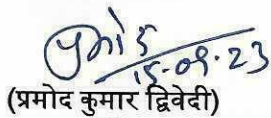 प्रमोद
15-09-23
(प्रमोद कुमार द्विवेदी)